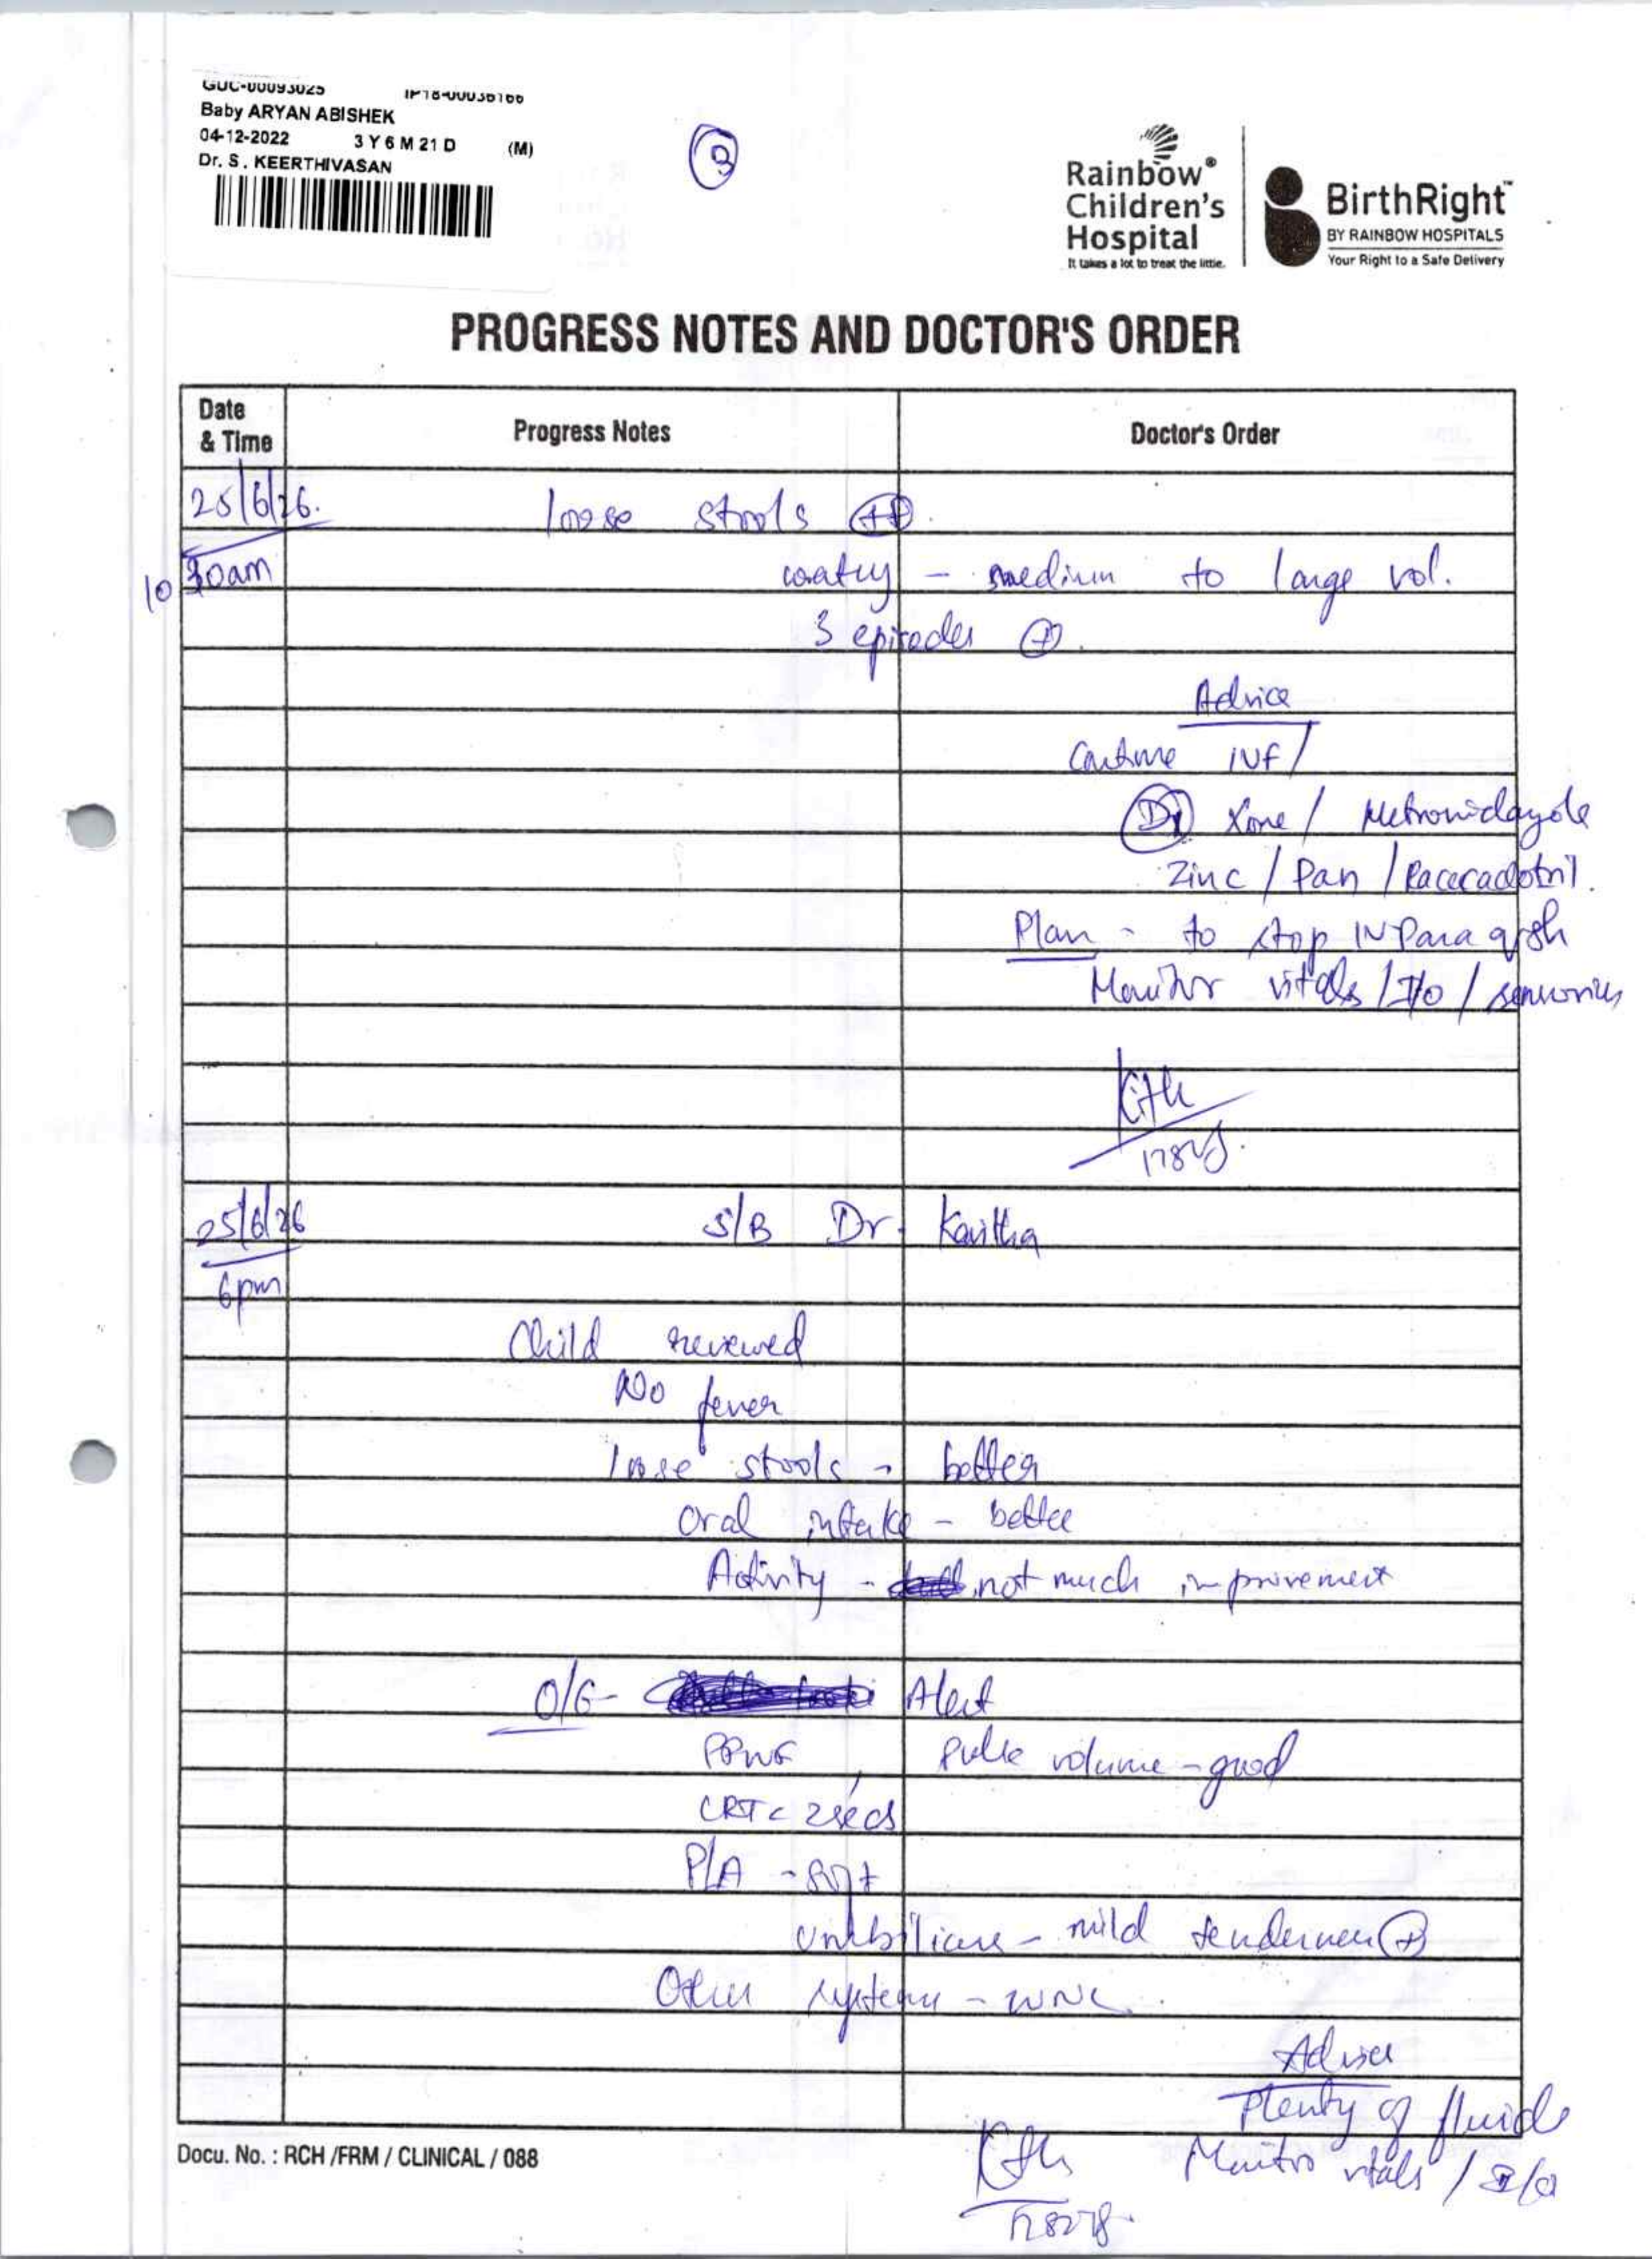 GUC-00093025 IP18-00036166
Baby ARYAN ABISHEK
04-12-2022 3 Y 6 M 21 D (M)
Dr. S . KEERTHIVASAN
3
Rainbow®
Children's
Hospital
It takes a lot to treat the little.
BirthRight™
BY RAINBOW HOSPITALS
Your Right to a Safe Delivery
PROGRESS NOTES AND DOCTOR'S ORDER
Date & Time
Progress Notes
Doctor's Order
25/6/26. loose stools ++.
10 30am watery - medium to large vol.
3 episodes +.
Advice
Continue IVF/
D1 Xone / Metronidazole
Zinc / Pan / Racecadotril.
Plan - to stop IV Para q8h
Monitor vitals / I/O / sensorium
25/6/26 S/B Dr. Kavitha
6pm
Child reviewed
No fever
loose stools - better
Oral intake - better
Activity - not much improvement
O/E - Alert
PPWF, Pulse volume - good
CRT < 2secs
P/A - soft
Umbilicus - mild tenderness +
Other systems - WNL.
Advice
Plenty of fluids
Monitor vitals / I/O
Docu. No. : RCH /FRM / CLINICAL / 088